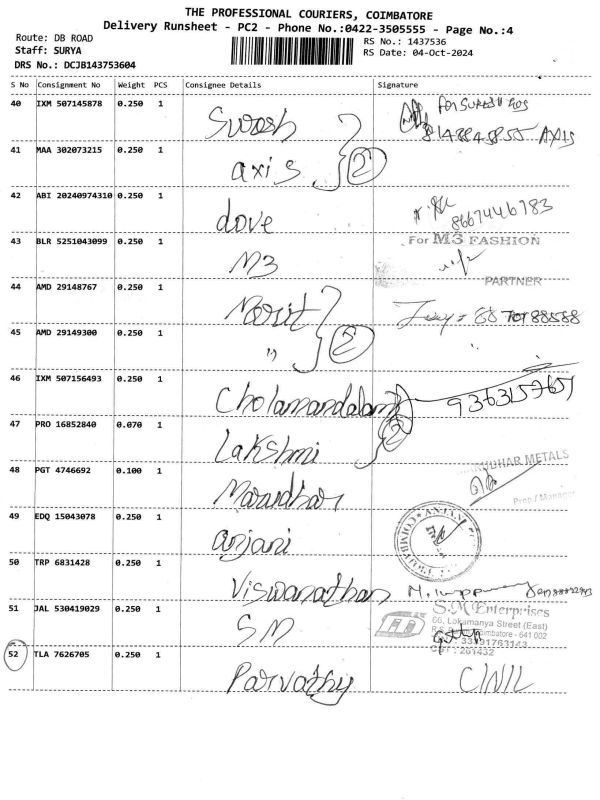 THE PROFESSIONAL COURIERS, COIMBATORE
Delivery Runsheet - PC2 - Phone No.:0422-3505555 - Page No.:4
Route: DB ROAD
RS No.: 1437536
Staff: SURYA
RS Date: 04-Oct-2024
DRS No.: DCJB143753604
S No Consignment No Weight PCS Consignee Details Signature
40 IXM 507145878 0.250 1 Suresh
AXIS
41 MAA 302073215 0.250 1 axis 2
42 ABI 20240974310 0.250 1 dove
8667446783
43 BLR 5251043099 0.250 1 M3
For M3 FASHION
PARTNER
44 AMD 29148767 0.250 1
45 AMD 29149300 0.250 1 " 2
46 IXM 507156493 0.250 1 Cholamandalam
47 PRO 16852840 0.070 1 Lakshmi 2
48 PGT 4746692 0.100 1 Marudhar
METALS
Prop / Manager
49 EDQ 15043078 0.250 1 anjani
50 TRP 6831428 0.250 1 Viswanathan
51 JAL 530419029 0.250 1 SM
S.M Enterprises
66, Lokamanya Street (East)
Coimbatore - 641 002
52 TLA 7626705 0.250 1 Parvathy